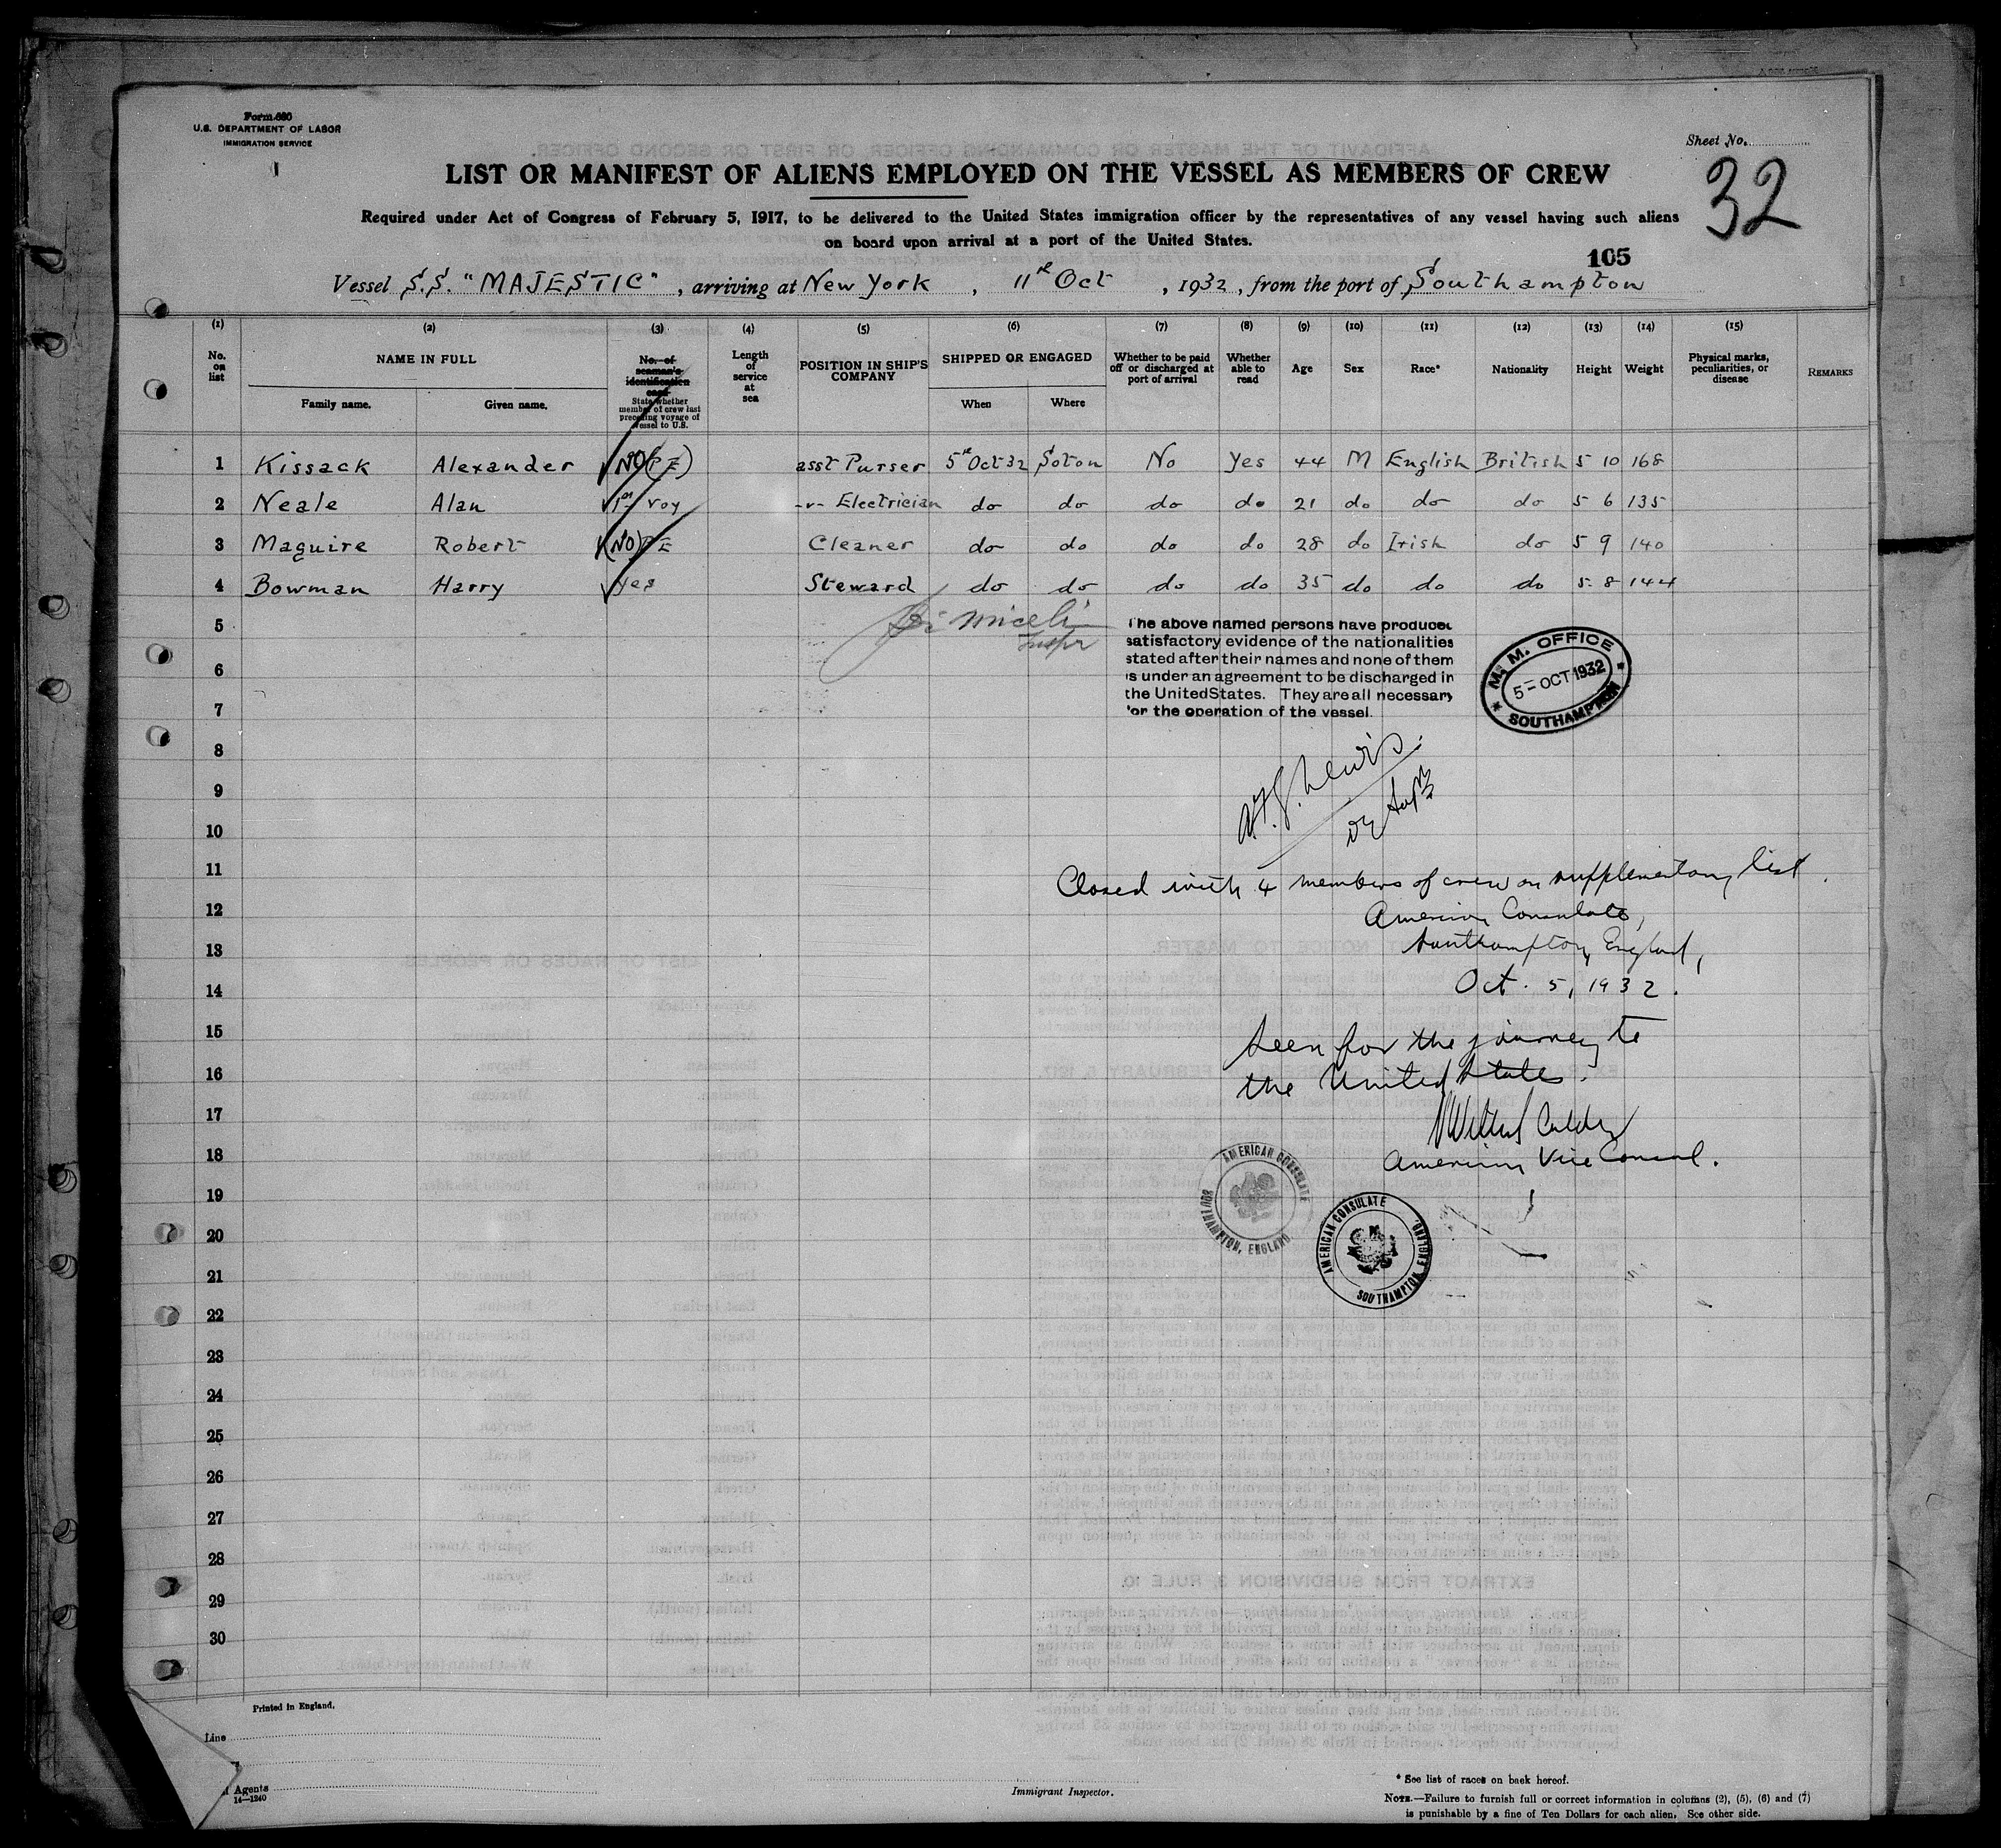 Form 680
U.S. DEPARTMENT OF LABOR
IMMIGRATION SERVICE
Sheet No.
32
LIST OR MANIFEST OF ALIENS EMPLOYED ON THE VESSEL AS MEMBERS OF CREW
Required under Act of Congress of February 5, 1917, to be delivered to the United States immigration officer by the representatives of any vessel having such aliens
on board upon arrival at a port of the United States.
105
Vessel S.S. "MAJESTIC", arriving at New York, 11th Oct, 1932, from the port of Southampton
(1) (2) (3) (4) (5) (6) (7) (8) (9) (10) (11) (12) (13) (14) (15)
No. on list
NAME IN FULL
Family name. Given name.
No. of seaman's identification card
State whether member of crew last preceding voyage of vessel to U.S.
Length of service at sea
POSITION IN SHIP'S COMPANY
SHIPPED OR ENGAGED
When Where
Whether to be paid off or discharged at port of arrival
Whether able to read
Age
Sex
Race*
Nationality
Height
Weight
Physical marks, peculiarities, or disease
REMARKS
1 Kissack Alexander NO (PE) asst Purser 5th Oct 32 Soton No Yes 44 M English British 5 10 168
2 Neale Alan 1st Voy -"- Electrician do do do do 21 do do do 5 6 135
3 Maguire Robert (NO) PE Cleaner do do do do 28 do Irish do 5 9 140
4 Bowman Harry Yes Steward do do do do 35 do do do 5 8 144
5
6
7
8
9
10
11
12
13
14
15
16
17
18
19
20
21
22
23
24
25
26
27
28
29
30
Miceli
Inspr
The above named persons have produced
satisfactory evidence of the nationalities
stated after their names and none of them
is under an agreement to be discharged in
the United States. They are all necessary
for the operation of the vessel.
M. M. OFFICE
5 - OCT 1932
SOUTHAMPTON
Lewis
Closed with 4 members of crew on supplementary list.
American Consulate,
Southampton, England,
Oct. 5, 1932.
Seen for the journey to
the United States.
American Vice Consul.
AMERICAN CONSULATE
SOUTHAMPTON, ENGLAND.
AMERICAN CONSULATE
SOUTHAMPTON, ENGLAND.
Printed in England.
Line
Agents
14—1240
Immigrant Inspector.
* See list of races on back hereof.
NOTE.—Failure to furnish full or correct information in columns (2), (5), (6) and (7)
is punishable by a fine of Ten Dollars for each alien. See other side.